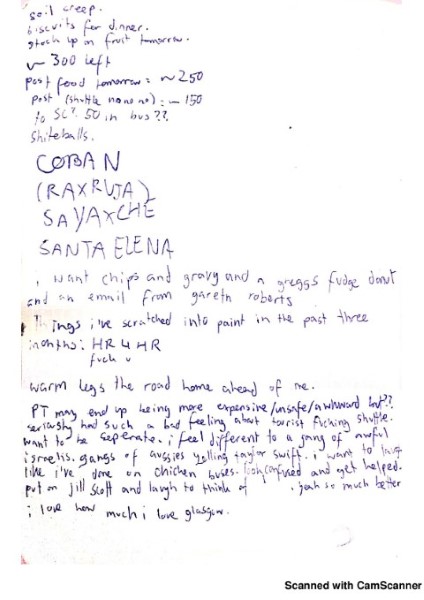 soil creep.
biscuits for dinner.
stock up on fruit tomorrow.
~ 300 left
post food tomorrow: ~250
post (shuttle no no no): ~ 150
to SC?. 50 in bus??
Shiteballs.
COBAN
(RAXRUJA)
SAYAXCHE
SANTA ELENA
i want chips and gravy and a greggs fudge donut
and an email from gareth roberts
Things i've scratched into paint in the past three
months: HR 4 HR
fuck u
warm legs the road home ahead of me.
PT may end up being more expensive/unsafe/awkward but??
seriously had such a bad feeling about tourist fucking shuttle.
want to be seperate. i feel different to a gang of awful
israelis. gangs of aussies yelling taylor swift. i want to
like i've done on chicken buses. look confused and get helped.
put on jill scott and laugh to think of . yeah so much better
i love how much i love glasgow.
Scanned with CamScanner